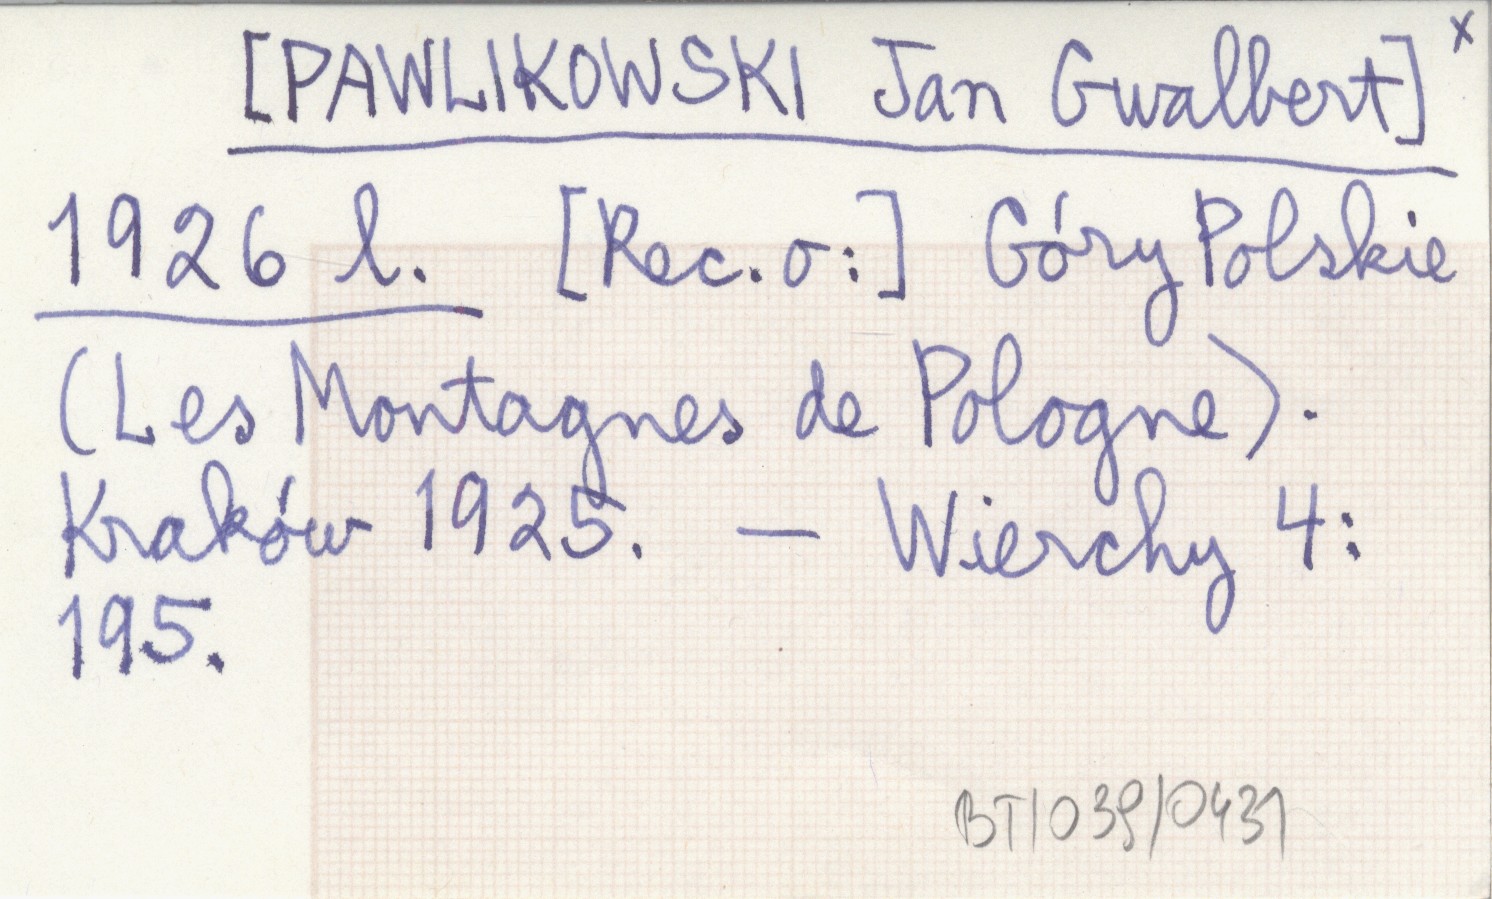 [PAWLIKOWSKI Jan Gwalbert] x
1926 l. [Rec. o:] Góry Polskie
(Les Montagnes de Pologne).
Kraków 1925. — Wierchy 4:
195.
BT/039/0431